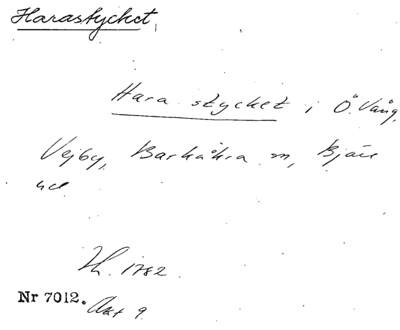 Harastycket,
Hara stycket i Ö. Vång,
Vejby, Barkåkra sn, Bjäre
hd
Lh. 1782.
Nr 7012.
Akt 9.